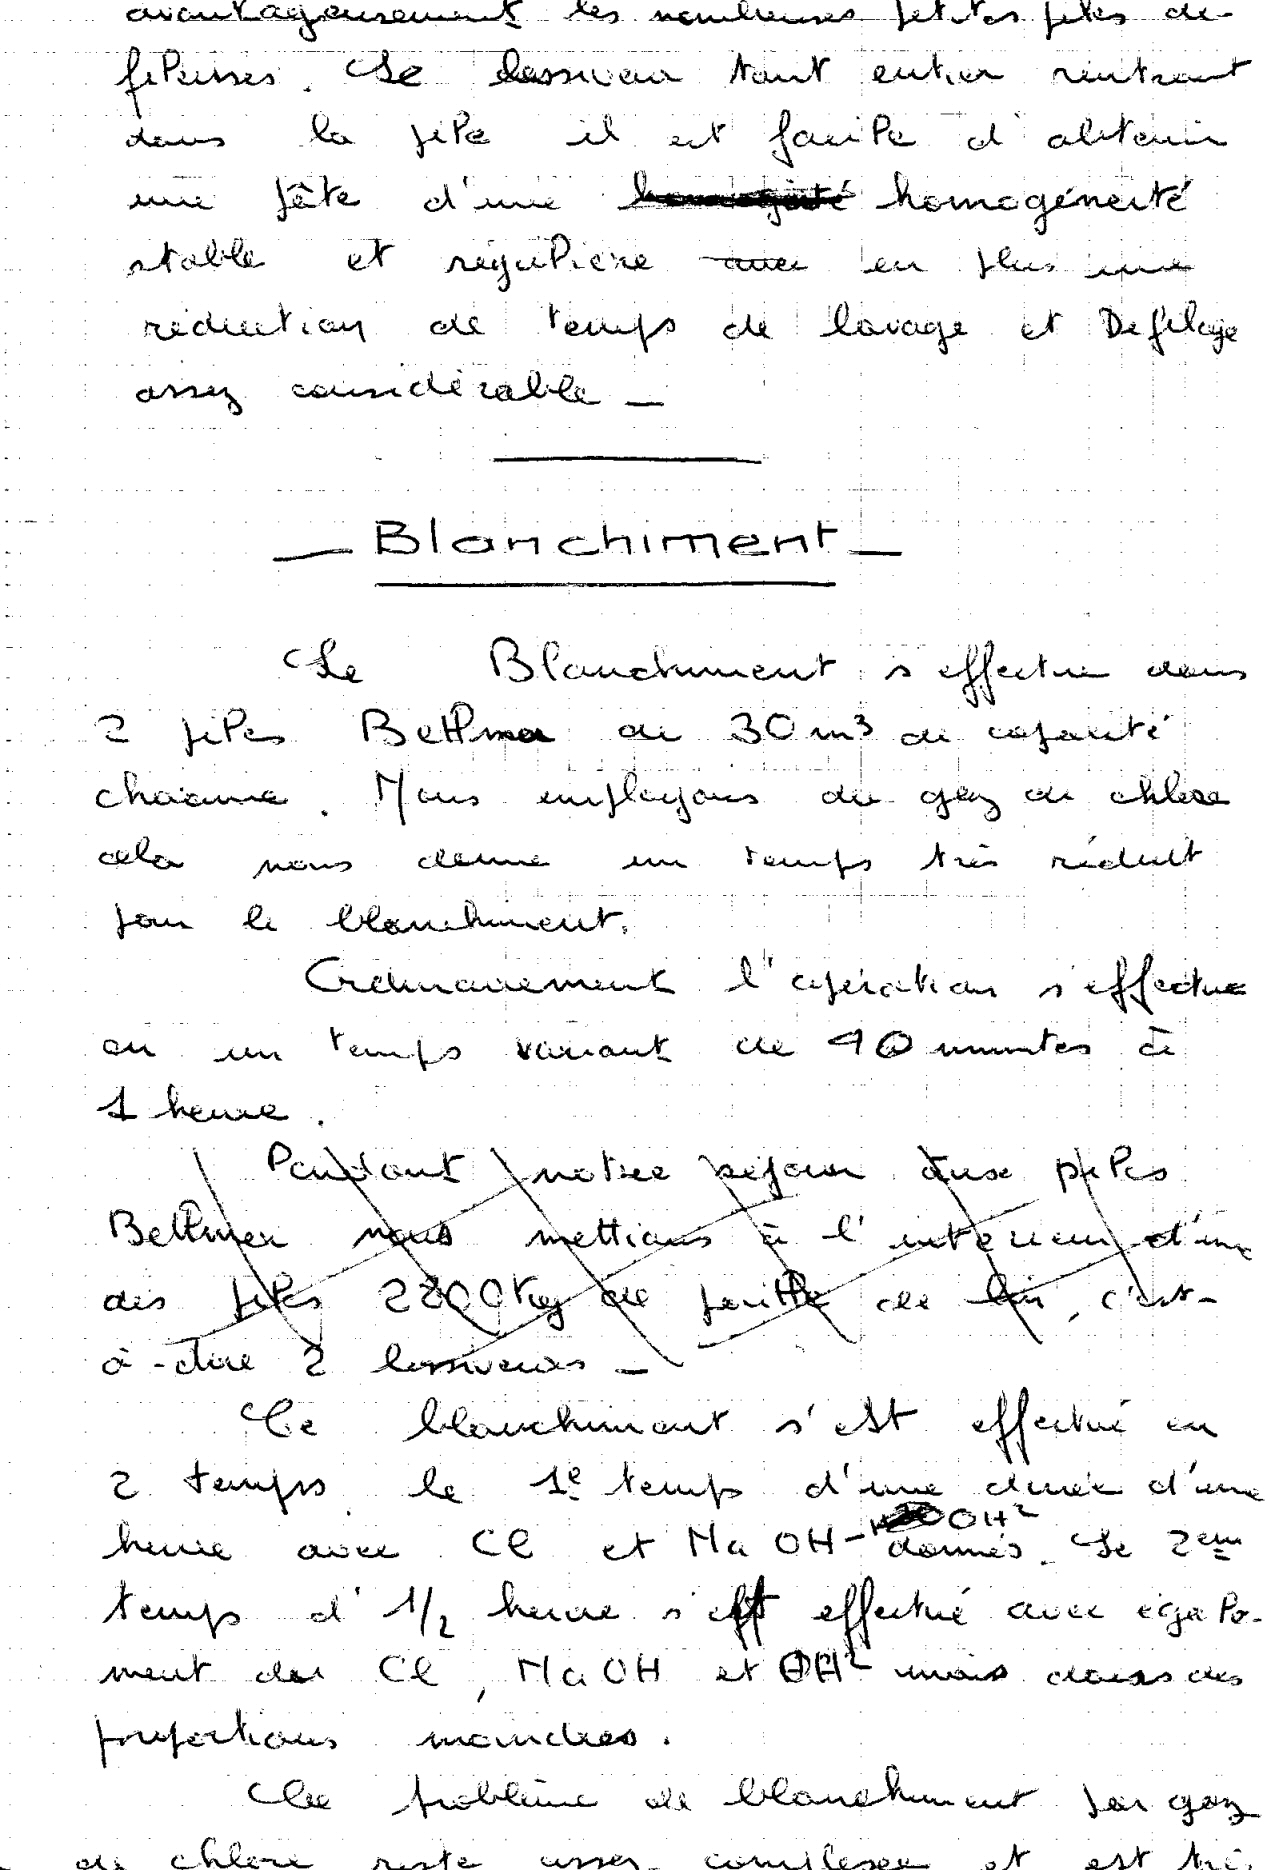 avantageusement les nombreuses petites piles dé-
fileuses. Le lessiveur tout entier rentrant
dans la pile il est facile d'obtenir
une pâte d'une homogénéité
stable et régulière avec en plus une
réduction de temps de lavage et Defilage
assez considérable _
_ Blanchiment _
Le Blanchiment s'effectue dans
2 piles Bellmer de 30 m³ de capacité
chacune. Nous employons du gaz de chlore
cela nous donne un temps très réduit
pour le blanchiment.
Ordinairement l'opération s'effectue
en un temps variant de 40 minutes à
1 heure.
Pendant notre séjour aux piles
Bellmer nous mettions à l'intérieur d'une
des piles 2200 Kg de de lin, c'est-
à-dire 2 lessiveurs _
Ce blanchiment s'est effectué en
2 temps le 1e temps d'une durée d'une
heure avec Cl et Na OH - OH² donnés. Le 2em
temps d' 1/2 heure s'est effectué avec égale-
ment du Cl, Na OH et OH² mais dans des
proportions moindres.
Le problème de blanchiment par gaz
de chlore reste assez complexe et est